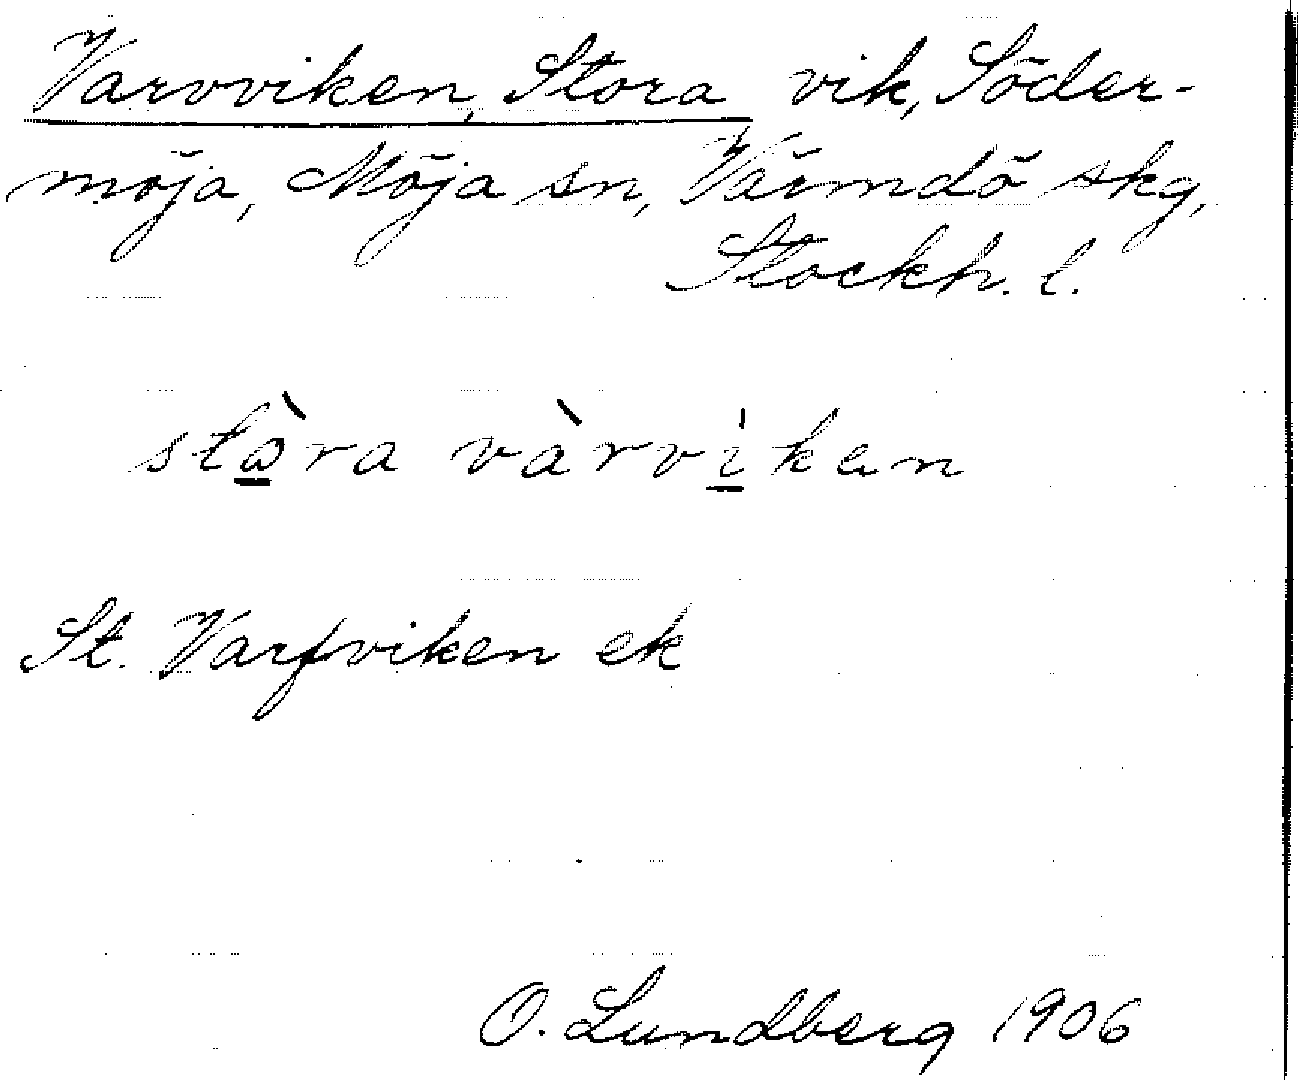 Varvviken, Stora vik, Söder-
möja, Möja sn, Värmdö skg,
Stockh. l.
stὼ̲ra vàrvi̲̍kən
St. Varfviken ek
O. Lundberg 1906